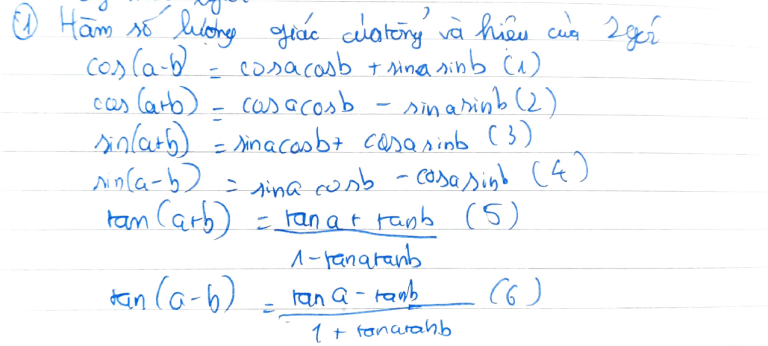 ① Hàm số lượng giác của tổng và hiệu của 2 góc
cos(a-b) = cosacosb + sinasinb (1)
cos(a+b) = cosacosb - sinasinb (2)
sin(a+b) = sinacosb + cosasinb (3)
sin(a-b) = sina cosb - cosasinb (4)
tan(a+b) = tana + tanb (5)
1-tanatanb
tan(a-b) = tana - tanb (6)
1 + tanatanb